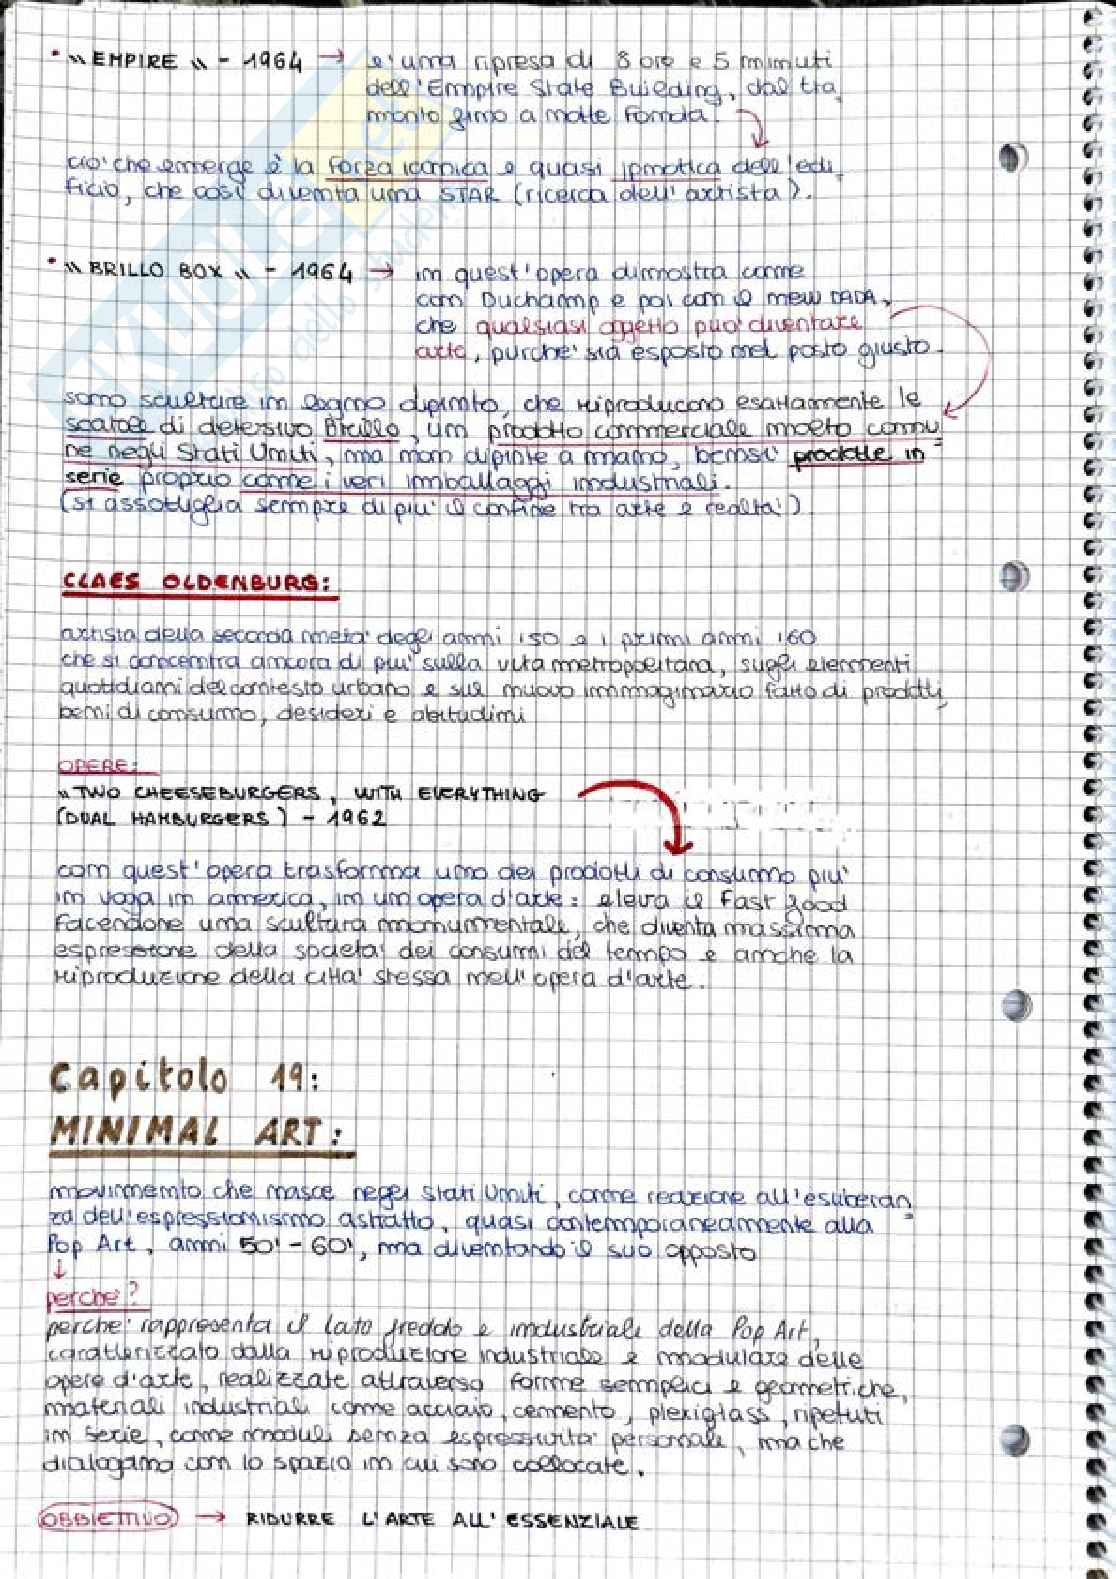 • " EMPIRE " - 1964 → e' una ripresa di 8 ore e 5 minuti
dell'Empire State Building, dal tra
monto fino a notte fonda.
cio' che emerge è la forza iconica e quasi ipnotica dell'edi
ficio, che così diventa una STAR (ricerca dell'artista).
• " BRILLO BOX " - 1964 → in quest'opera dimostra come
con Duchamp e poi con il new DADA,
che qualsiasi oggetto puo' diventare
arte, purche' sia esposto nel posto giusto.
sono sculture in legno dipinto, che riproducono esattamente le
scatole di detersivo Brillo, un prodotto commerciale molto comu
ne negli Stati Uniti, ma non dipinte a mano, bensi' prodotte in
serie proprio come i veri imballaggi industriali.
(si assottiglia sempre di piu' il confine tra arte e realta')
CLAES OLDENBURG:
artista della seconda meta' degli anni '50 e i primi anni '60
che si concentra ancora di piu' sulla vita metropolitana, sugli elementi
quotidiani del contesto urbano e sul nuovo immaginario fatto di prodotti,
beni di consumo, desideri e abitudini
OPERE:
" TWO CHEESEBURGERS, WITH EVERYTHING
(DUAL HAMBURGERS) - 1962
con quest'opera trasforma uno dei prodotti di consumo piu'
in voga in america, in un opera d'arte: eleva il fast food
facendone una scultura monumentale, che diventa massima
espressione della societa' dei consumi del tempo e anche la
riproduzione della citta' stessa nell'opera d'arte.
Capitolo 19:
MINIMAL ART:
movimento che nasce negli Stati Uniti, come reazione all'esuberan
za dell'espressionismo astratto, quasi contemporaneamente alla
Pop Art, anni 50' - 60', ma diventando il suo opposto
↓
perche'?
perche' rappresenta il lato freddo e industriale della Pop Art,
caratterizzato dalla riproduzione industriale e modulare delle
opere d'arte, realizzate attraverso forme semplici e geometriche,
materiali industriali come acciaio, cemento, plexiglass, ripetuti
in serie, come moduli senza espressivita' personale, ma che
dialogano con lo spazio in cui sono collocate.
OBBIETTIVO → RIDURRE L'ARTE ALL'ESSENZIALE